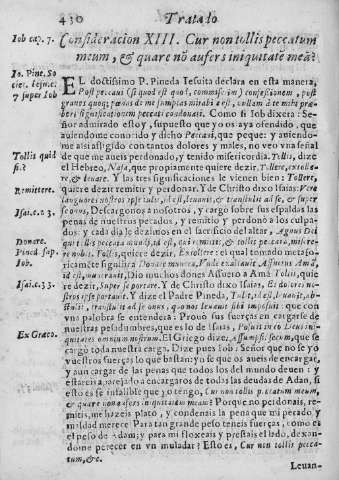 430 Tratado
Iob cap. 7. Consideracion XIII. Cur non tollis peccatum
meum, & quare nō aufers iniquitatē meā?
Io. Pine. So
ciet. Iesu. c.
7 super Iob
EL doctissimo P. Pineda Iesuita declara en esta manera,
Post peccaui (si quod est quod, commisse im) confessionem, post
Como si Iob dixera: Se-
ñor admirado estoy, supuesto que yo os aya ofendido, que
auiendome conocido y dicho Peccaui, que peque: y auiendo-
me assi afligido con tantos dolores y males, no veo vna señal
Tollis quid
sit?
de que me aueis perdonado, y tenido misericordia. Tollis, dize
el Hebreo, Nasa, que propiamente quiere dezir, Tollere, extolle-
re, & leuare. Y las tres significaciones le vienen bien: Tollere,
Remittere.
quiere dezir remitir y perdonar. Y de Christo dixo Isaias: Vere
languores nostros ipse tulit, id est, leuauit, & transtulit ad se, & super
Isai. c. 23.
se onus, Descargonos a nosotros, y cargo sobre sus espaldas las
penas de nuestros pecados, y remitio y perdonò los culpa-
dos: y cada dia le dezimos en el sacrificio del altar, Agnus Dei
Donare.
qui tollis peccata mundi, id est, qui remittis, & tollis peccata, misere-
Pined. sup.
Iob.
re nobis. Tollis, quiere dezir, Entollere: el qual tomado meta-
ricamēte significa Donare munera,
id est, munerauit, Dio muchos dones Assuero a Amā Tollis, quie
Isai. c. 53.
re dezir, Super se portare. Y de Christo dixo Isaias, Et dolores no-
stros ipse portauit. Y dize el Padre Pineda, Tulit, id est, leuauit, abs-
tulit, transtulit ad se onus, que con
vna palabra se entendera: Prouò sus fuerças en cargarse de
Ex Graeco.
nuestras pesadumbres, que es lo de Isaias, Posuit in eo Deus ini-
quitates omnium nostrum. El Griego dize, Assumpsit secum, que se
cargò toda nuestra carga. Dize pues Iob: Señor que no se yo
vuestras fuerças lo que bastan: yo se que os aueis de encargar,
y aun cargar de las penas que todos los del mundo deuen: y
estareis aparejado a encargaros de todas las deudas de Adan, si
esto es tan infalible que yo tengo, Cur non tollis peccatum meum,
& quare non aufers iniquitatem meam? Porque no perdonais, re-
mitis, me hazeis plato, y condenais la pena que mi pecado y
maldad merece? Para tan grande peso teneis fuerças, como es
el peso de Adam; y para mi floxeais y prestais el lado, dexan-
dome perecer en vn muladar? Esto es, Cur non tollis pecca-
tum, &c.
Leuan-